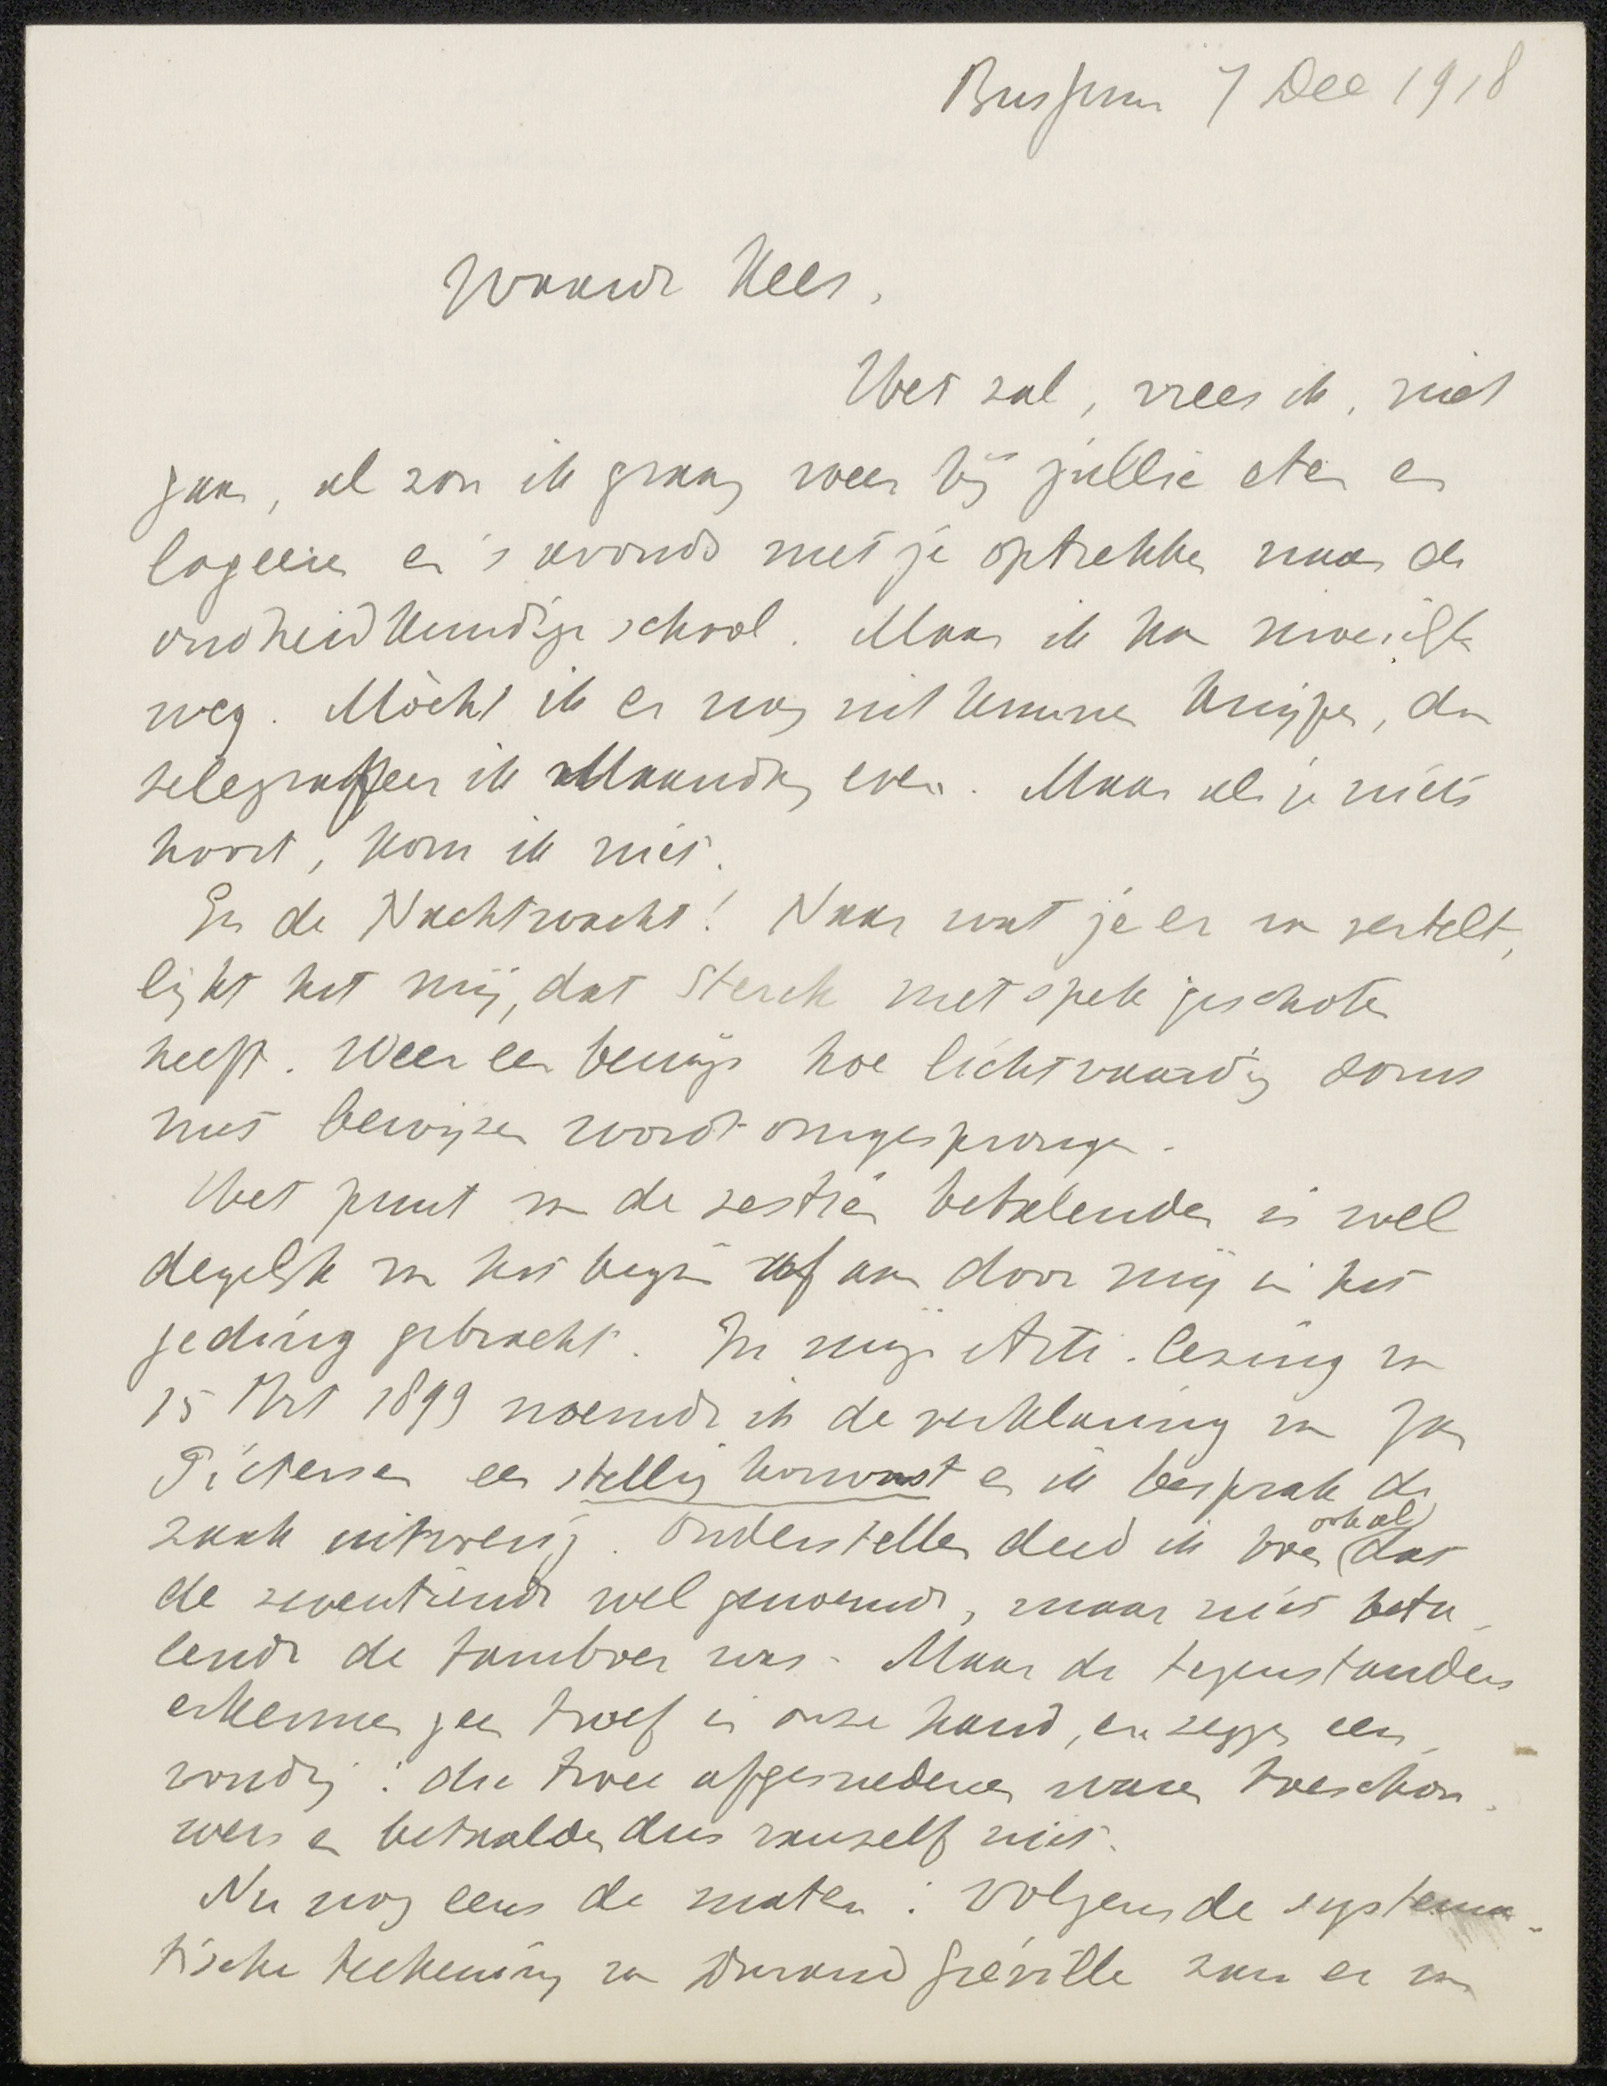 Bussum 7 Dec 1918
Waarde Kees,
Het zal, vrees ik, niet
gaan, al zou ik graag weer bij jullie eten en
logeeren en 's avonds met je optrekken naar de
oudheidkundige school. Maar ik kan moeielijk
weg. Mòcht ik er nog uit kunnen knijpen, dan
telegrafeer ik Maandag even. Maar als je niets
hoort, kom ik niet.
En de Nachtwacht! Naar wat je er van vertelt,
lijkt het mij, dat Sterck met spek geschoten
heeft. Weer een bewijs hoe lichtvaardig soms
met bewijzen wordt omgesprongen.
Het punt van de zestien betalenden is wel
degelijk van het begin af aan door mij in het
geding gebracht. In mijn Arti-lezing van
15 Mrt 1899 noemde ik de verklaring van Jan
Pietersen een stellig houvast en ik besprak de
zaak uitvoerig. Onderstellen deed ik toen ook al dat
de zeventiende wel genoemde, maar niet beta-
lende de tamboer was. Maar de tegenstanders
erkennen geen troef in onze hand, en zeggen een-
voudig: die twee afgesnedenen waren toeschou-
wers en betaalden dus vanzelf niet.
Nu nog eens de maten: volgens de systema-
tische teekening van Durand Gréville zou er van